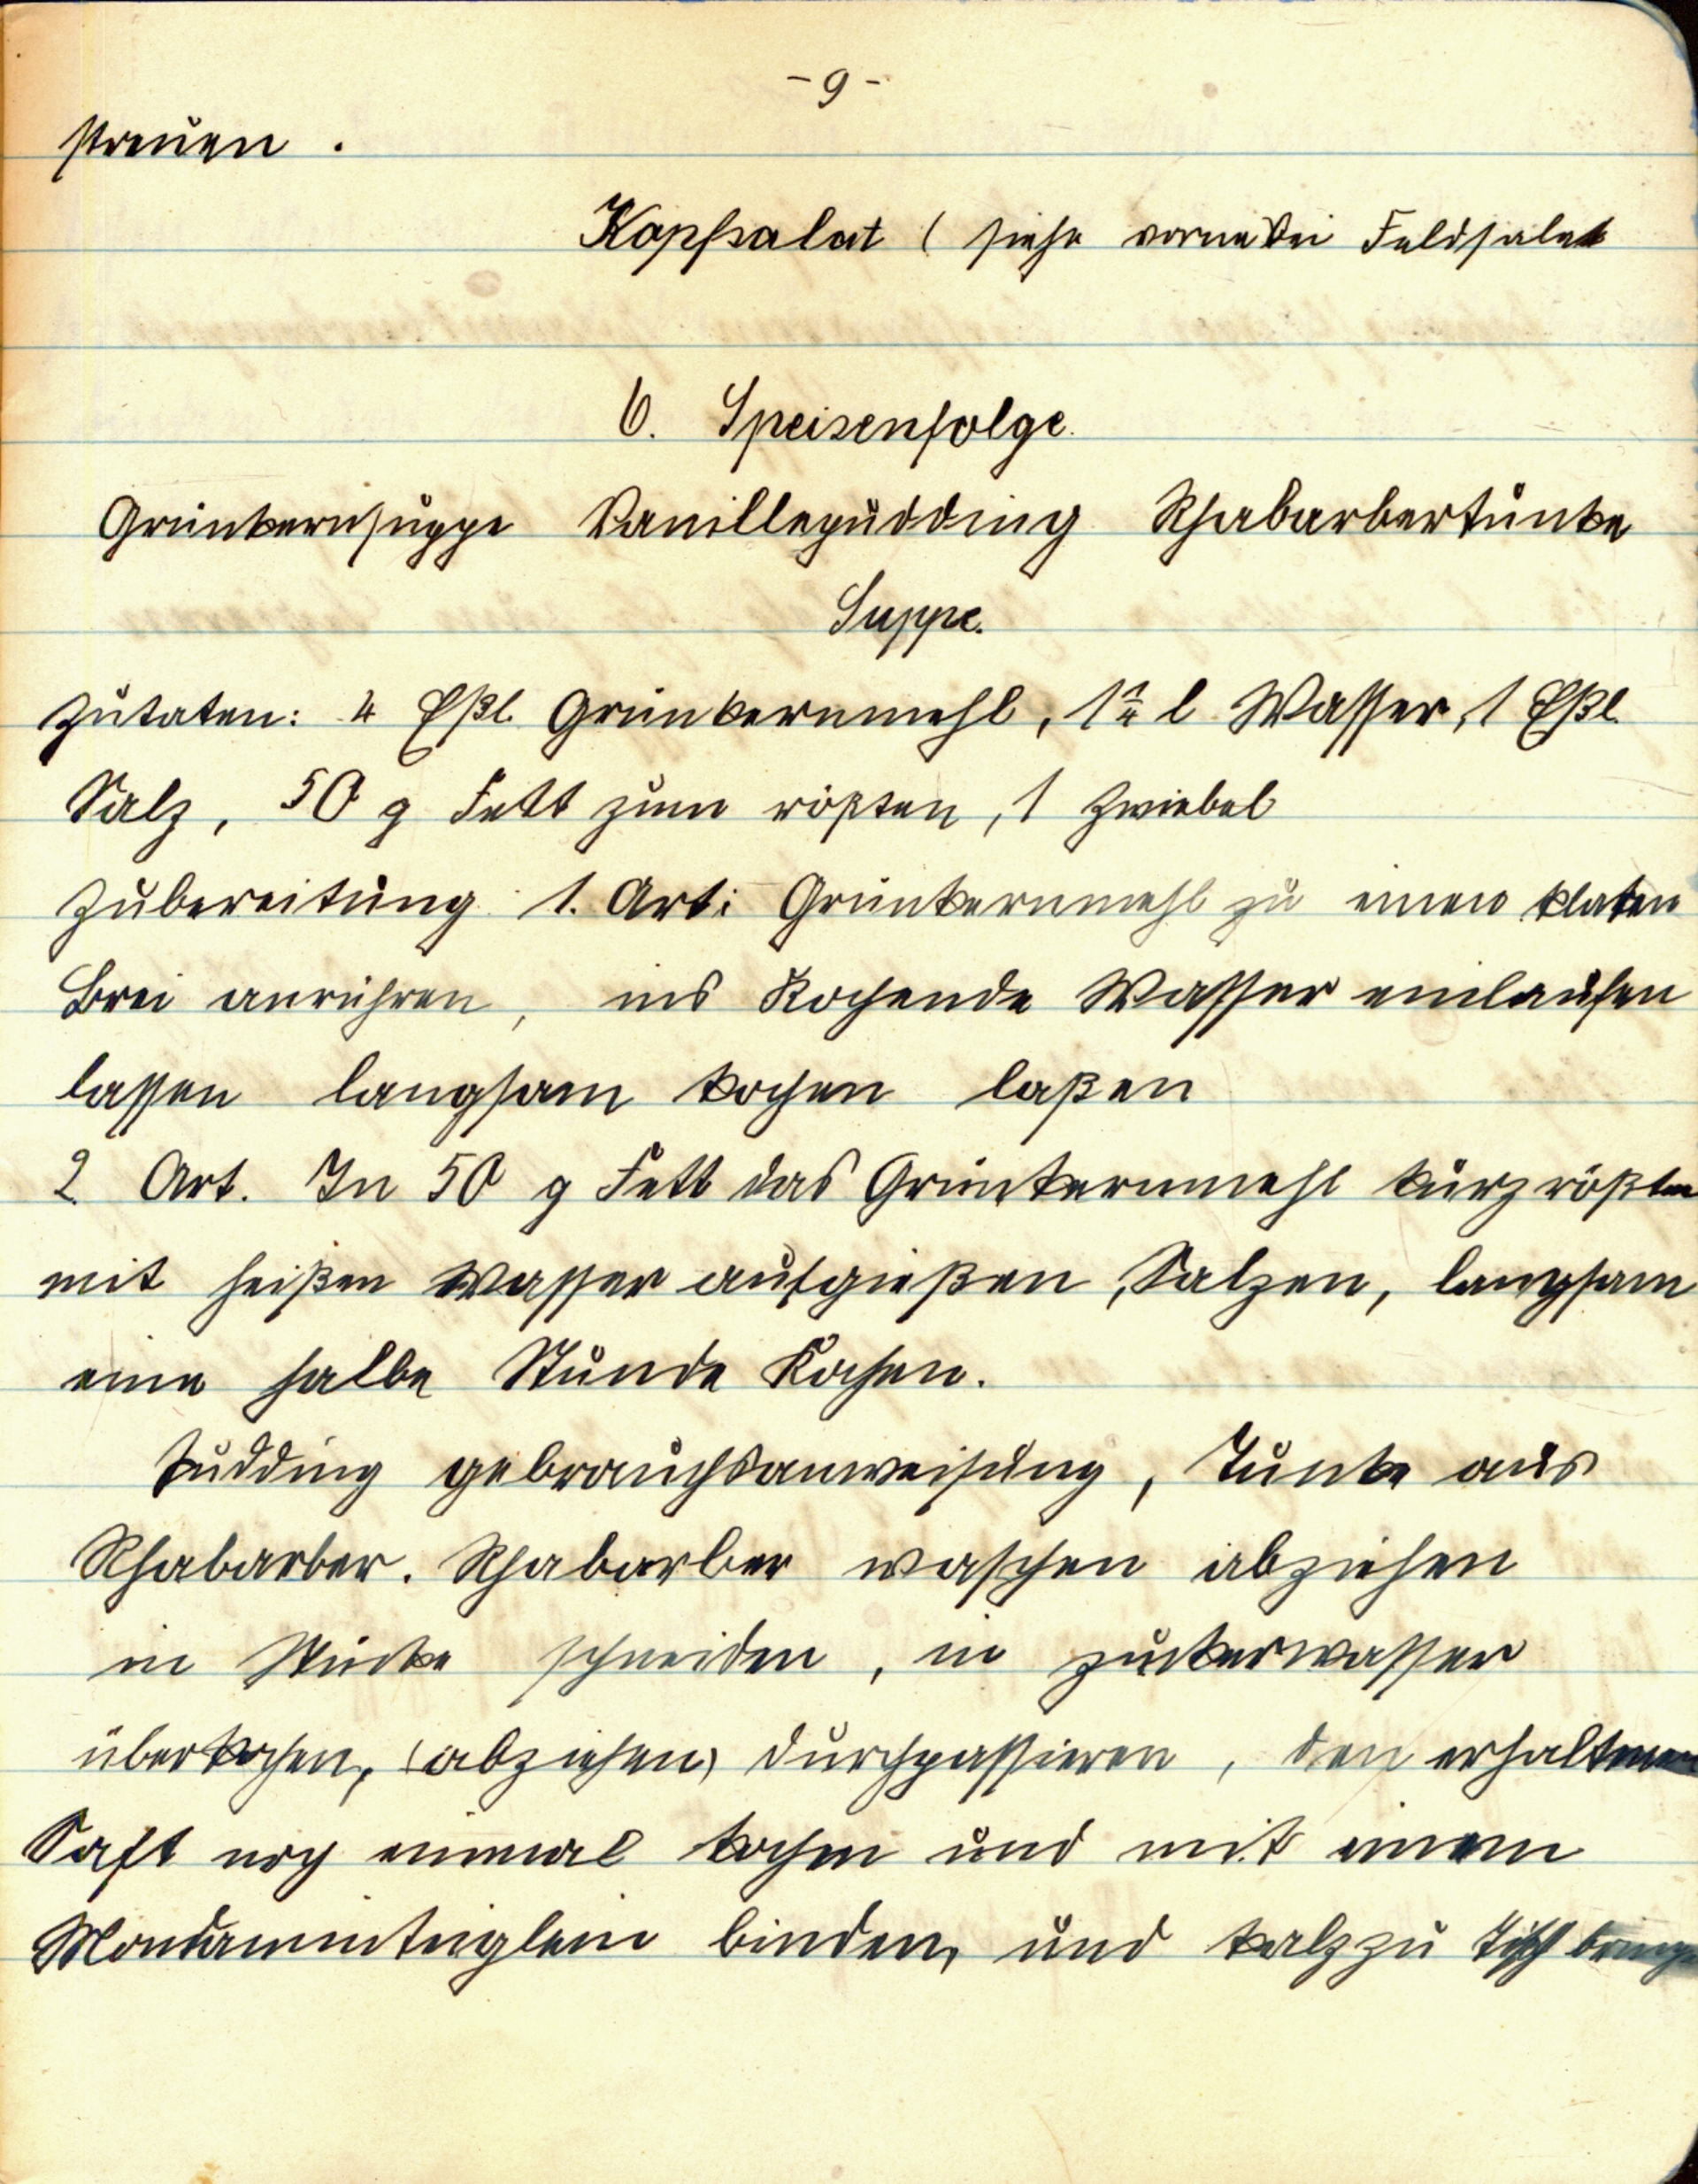 - 9 -
streuen .
Kopfsalat ( siehe vorne bei Feldsalat
6. Speisenfolge.
Grünkernsuppe Vanillepudding Rhabarbertunke
Suppe.
Zutaten: 4 Eßl. Grünkernmehl, 1¼ l Wasser, 1 Eßl.
Salz, 50 g Fett zum rößten, 1 Zwiebel
Zubereitung: 1. Art: Grünkernmehl zu einen
Brei anrühren, ins Kochende Wasser einlaufen
lassen langsam kochen laßen
2 Art. In 50 g Fett das Grünkernmehl kurz rößten
mit heißen Wasser aufgießen, Salzen, langsam
eine halbe Stunde Kochen.
Pudding gebrauchsanweisung, Tunke aus
Rhabarber. Rhabarber waschen abziehen
in Stücke schneiden, in zuckerwasser
überkochen, (abziehen) durchpassieren, den erhaltenen
Saft noch einmal kochen und mit einem
Mondaminteiglein binden, und kalz zu Tisch bringen